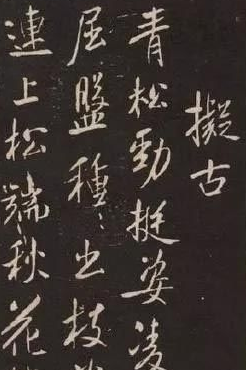 擬古
青松勁挺姿凌
屈盤種〻出枝
連上松端秋花